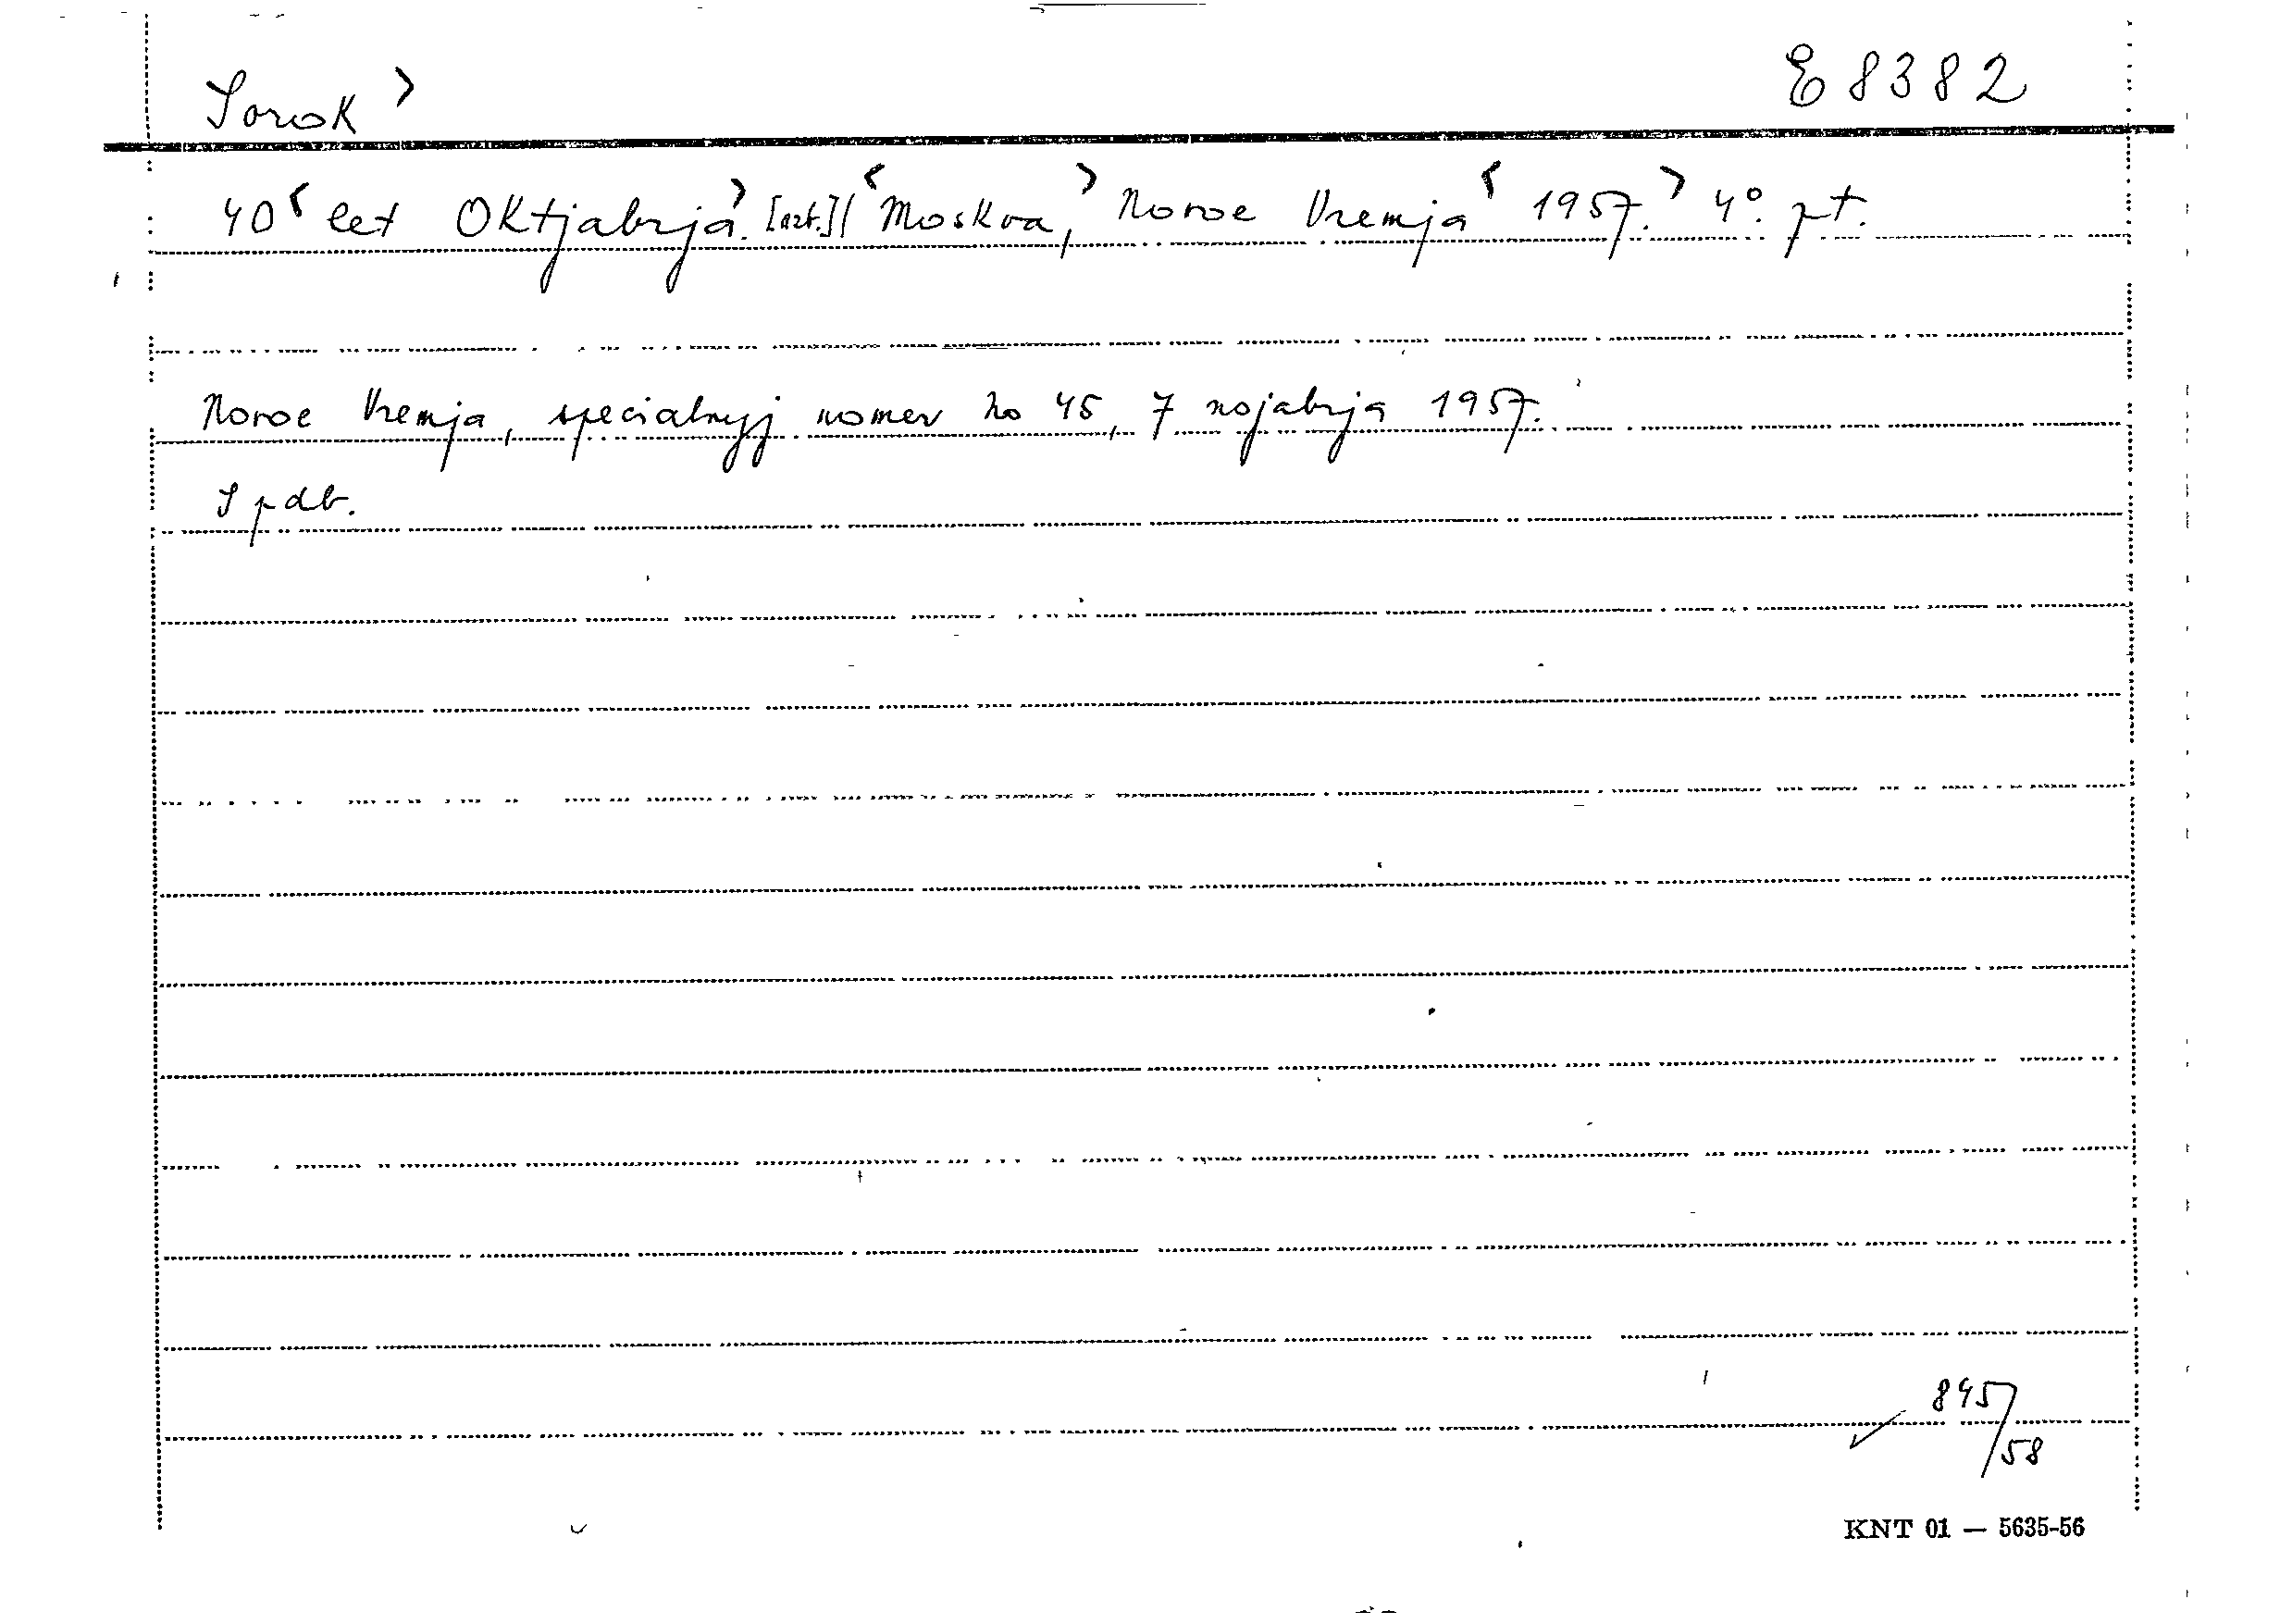 Sorok > E 8382
40 < let Oktjabrja >. [azt.] | < Moskva, > Novoe Vremja < 1957. > 4°. pt.
Novoe Vremja, specialnyj nomer no 45, 7 nojabrja 1957.
Spdb.
845/58
KNT 01 — 5635-56